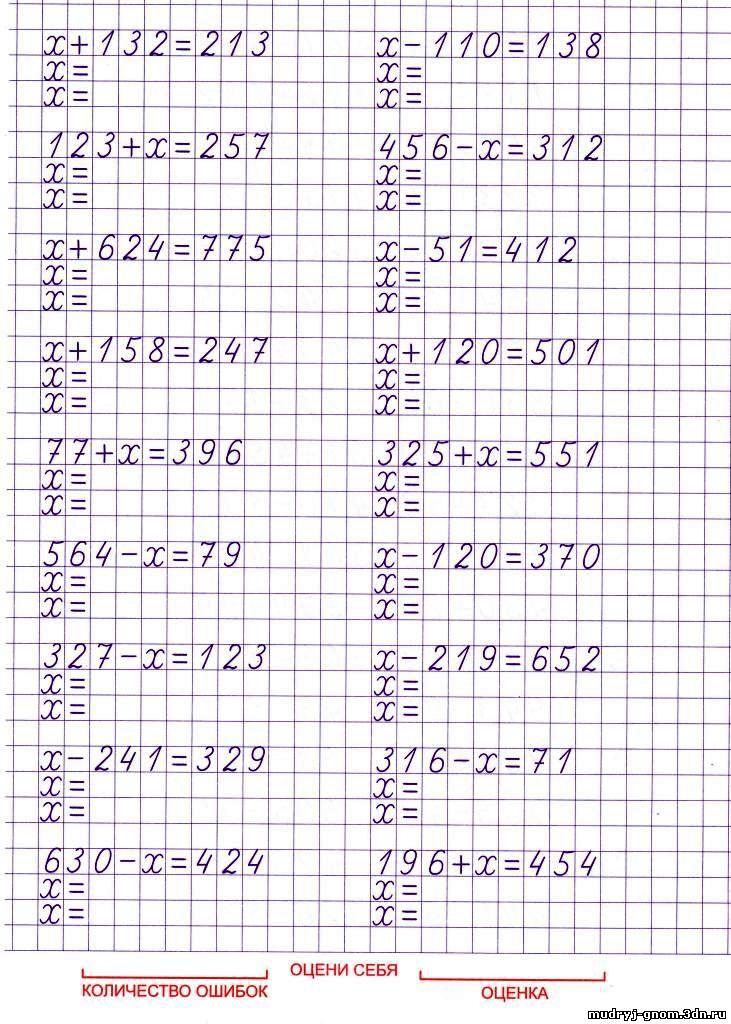 x+132=213
x=
x=
x-110=138
x=
x=
123+x=257
x=
x=
456-x=312
x=
x=
x+624=775
x=
x=
x-51=412
x=
x=
x+158=247
x=
x=
x+120=501
x=
x=
77+x=396
x=
x=
325+x=551
x=
x=
564-x=79
x=
x=
x-120=370
x=
x=
327-x=123
x=
x=
x-219=652
x=
x=
x-241=329
x=
x=
316-x=71
x=
x=
630-x=424
x=
x=
196+x=454
x=
x=
ОЦЕНИ СЕБЯ
КОЛИЧЕСТВО ОШИБОК
ОЦЕНКА
mudryj-gnom.3dn.ru